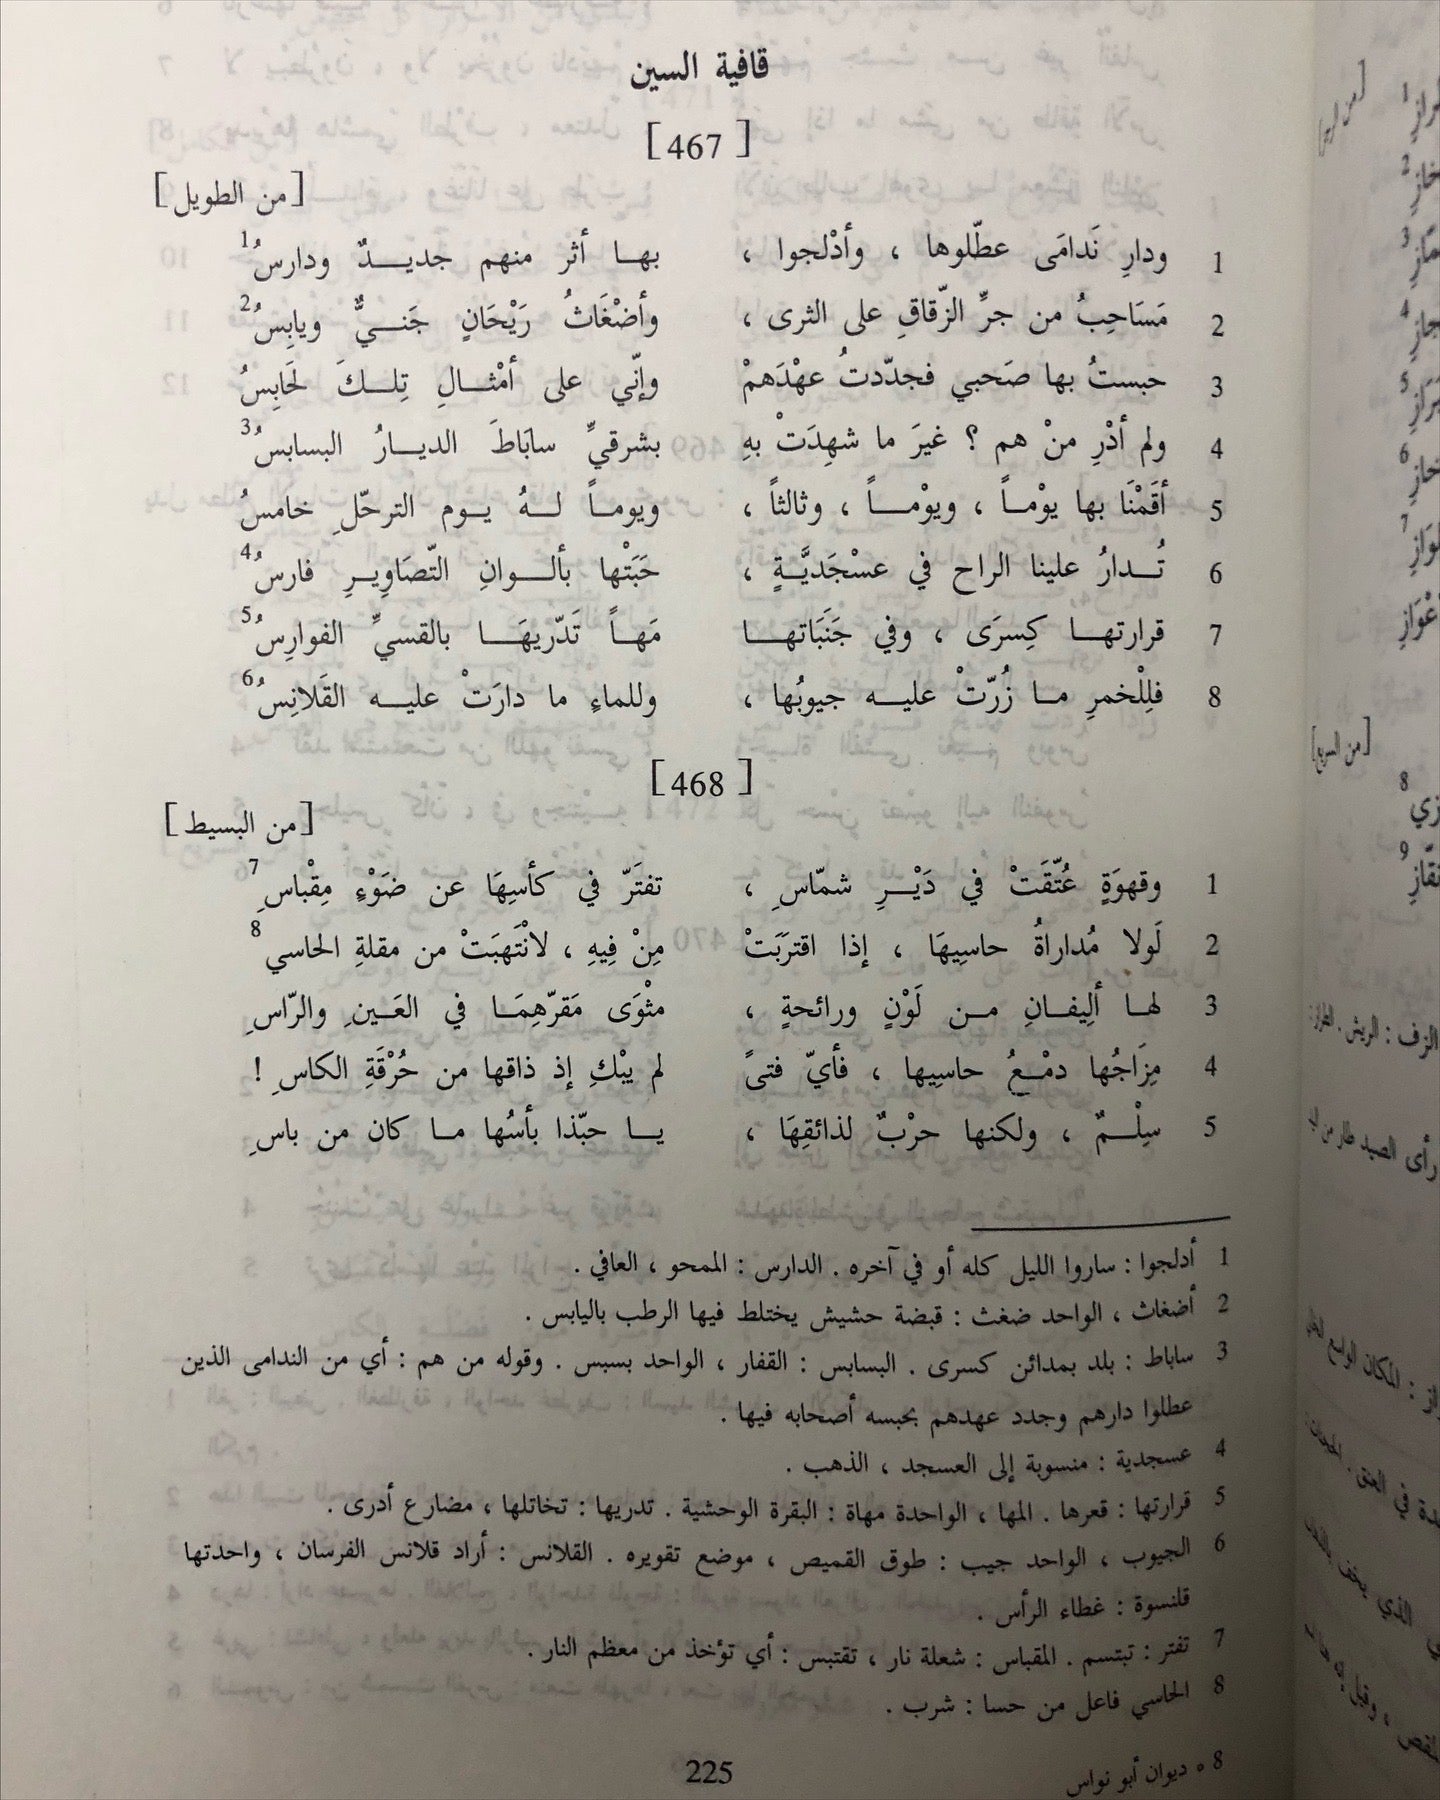 قافية السين
[ 467 ]
[ من الطويل ]
1 ودارِ نَدامَى عطّلوها ، وأدْلجوا ، بهـا أثر منهم جديـدٌ ودارسُ1
2 مَسَاحِبُ من جرِّ الزّقاقِ على الثرى ، وأضْغَاثُ رَيْحَانٍ جَنيٌّ ويابِسُ2
3 حبستُ بها صَحبي فجدّدتُ عهْدَهمْ وإنّي على أمْثالِ تِلكَ لَحَابِسُ
4 ولم أدْرِ منْ هم ؟ غيرَ ما شهِدَتْ بهِ بشرقيِّ ساباطَ الديارُ البسابسُ3
5 أقَمْنَا بها يوْماً ، ويوْماً ، وثالثاً ، ويوماً لهُ يوم الترحّلِ خامسُ
6 تُدارُ علينا الراح في عسْجَديَّةٍ ، حَبَتْها بألوانِ التّصَاوِيرِ فارسُ4
7 قرارتها كِسرَى ، وفي جَنَبَاتها مَهاً تَدّريهَا بالقسيِّ الفوارِسُ5
8 فلِلْخمرِ ما زُرّتْ عليه جيوبُها ، وللماءِ ما دارَتْ عليه القَلانِسُ6
[ 468 ]
[ من البسيط ]
1 وقهوَةٍ عُتّقَتْ في دَيْرِ شمّاسِ ، تفتَرّ في كأسِهَا عن ضَوْءِ مِقْباسِ7
2 لَولا مُداراةُ حاسِيهَا ، إذا اقتَرَبَتْ مِنْ فِيهِ ، لانْتَهبَتْ من مقلةِ الحاسي8
3 لها ألِيفانِ من لَوْنٍ ورائحةٍ ، مثْوَى مَقرّهِمَا في العَينِ والرّاسِ
4 مِزَاجُها دمْعُ حاسِيها ، فأيّ فتىً لم يبْكِ إذ ذاقها من حُرْقَةِ الكاسِ !
5 سِلْمٌ ، ولكنها حرْبٌ لذائقِهَا ، يا حبّذا بأسُها ما كان من باسِ
1 أدلجوا : ساروا الليل كله أو في آخره . الدارس : الممحو ، العافي .
2 أضغاث ، الواحد ضغث : قبضة حشيش يختلط فيها الرطب باليابس .
3 ساباط : بلد بمدائن كسرى . البسابس : القفار ، الواحد بسبس . وقوله من هم : أي من الندامى الذين
عطلوا دارهم وجدد عهدهم بحبسه أصحابه فيها .
4 عسجدية : منسوبة إلى العسجد ، الذهب .
5 قرارتها : قعرها . المها ، الواحدة مهاة : البقرة الوحشية . تدريها : تخاتلها ، مضارع أدرى .
6 الجيوب ، الواحد جيب : طوق القميص ، موضع تقويره . القلانس : أراد قلانس الفرسان ، واحدتها
قلنسوة : غطاء الرأس .
7 تفتر : تبتسم . المقباس : شعلة نار ، تقتبس : أي تؤخذ من معظم النار .
8 الحاسي فاعل من حسا : شرب .
225
8 ه ديوان أبو نواس
[ من السريع ]
الزف : الريش .
رأى الصيد طار من
: المكان الواسع